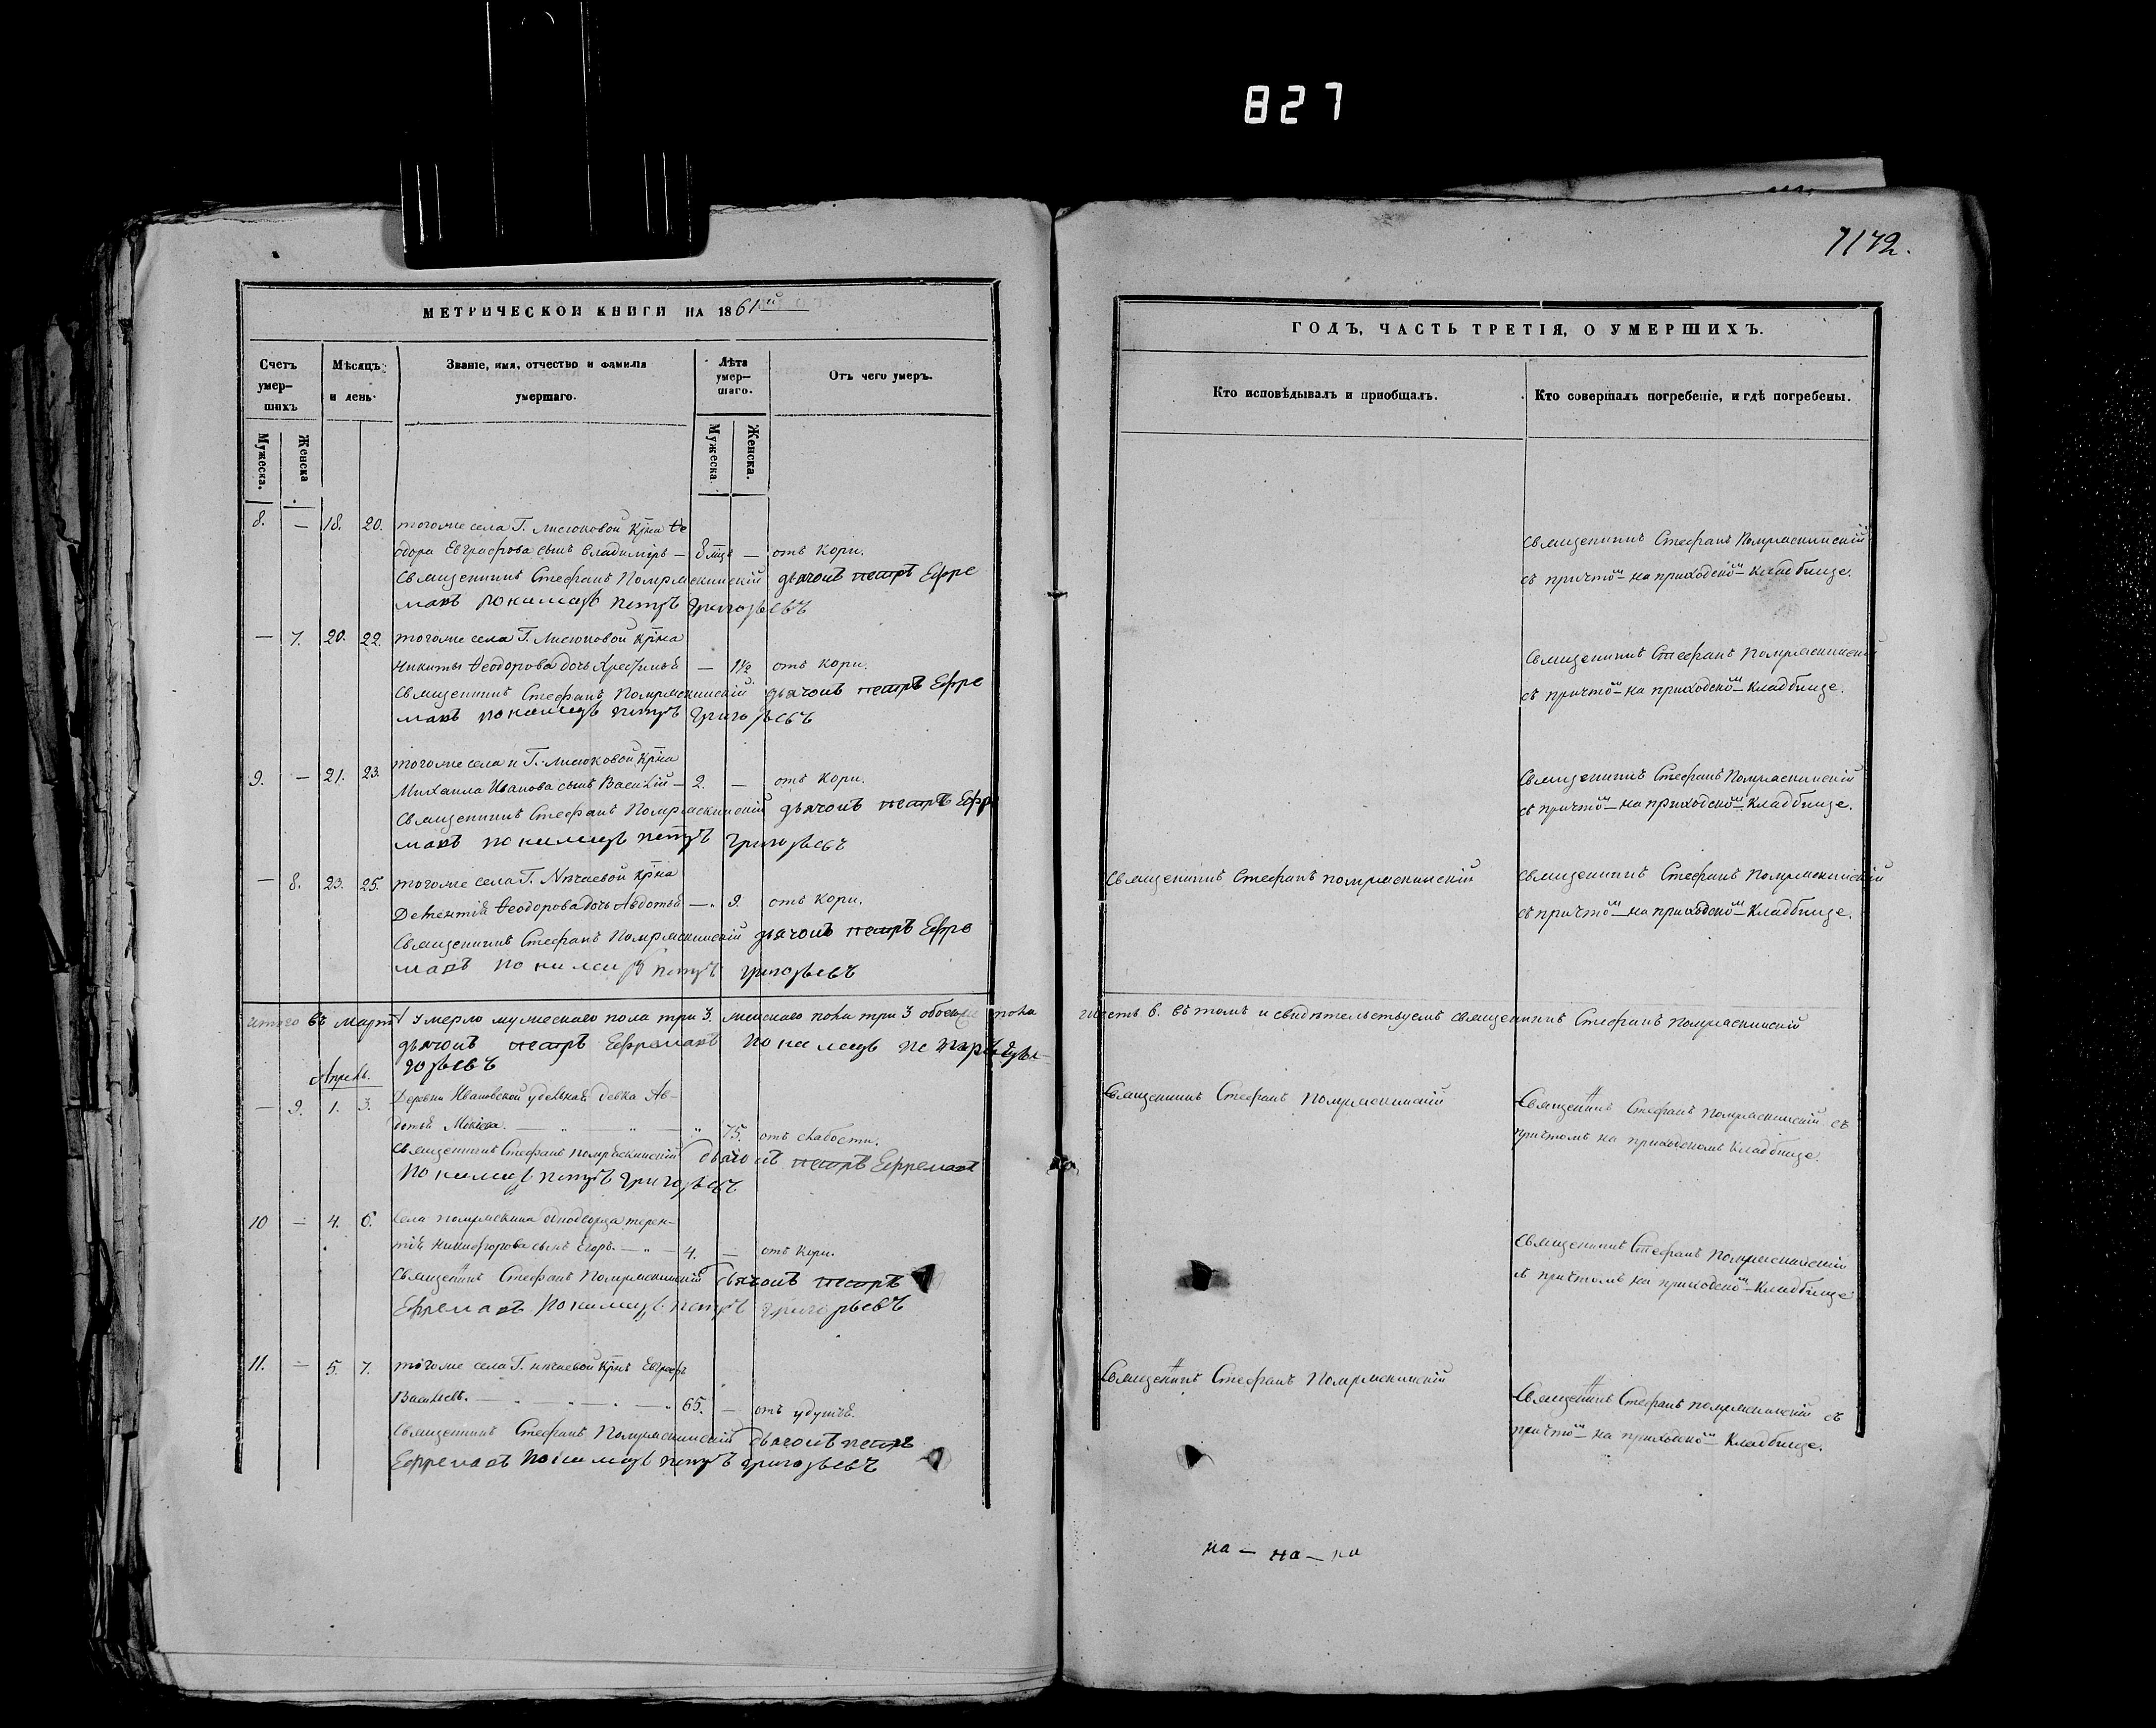 827
1172.
МЕТРИЧЕСКОЙ КНИГИ НА 1861й
Счетъ умер- шихъ
Мѣсяцъ и день.
Званіе, имя, отчество и фамилія умершаго.
Лѣта умер- шаго.
Отъ чего умеръ.
Мужеска.
Женска
Мужеска
Женска.
8. — 18. 20. тогоже села Г. Лисюковой Крᷠна Ѳе
одора Евграфова сынъ Владиміръ — 8 мцъ — отъ кори.
Священникъ Стефанъ дьячокъ Петръ Ефре
мовъ пономарь Петръ Григорьевъ
— 7. 20. 22. тогоже села Г. Лисюковой Крᷠна
Никиты Ѳеодорова дочь — 1½ отъ кори.
Священникъ Стефанъ дьячокъ Петръ Ефре
мовъ пономарь Петръ Григорьевъ
9. — 21. 23. тогоже села и Г. Лисюковой Крᷠна
Михаила Иванова сынъ Василій — 2. — отъ кори.
Священникъ Стефанъ дьячокъ Петръ Ефре
мовъ пономарь Петръ Григорьевъ
— 8. 23. 25. тогоже села Г. Крᷠна
Ѳеодорова дочь Авдотья — 9. отъ кори.
Священникъ Стефанъ дьячокъ Петръ Ефре
мовъ пономарь Петръ Григорьевъ
итого въ Мартѣ умерло мужескаго пола три 3. женскаго пола три 3 обоего пола
дьячокъ Петръ Ефремовъ пономарь Петръ Гри-
горьевъ
Апрель.
— 9. 1. 3. Деревни Ивановской удельная девка Ав-
дотья — 75. отъ слабости.
Священникъ Стефанъ дьячокъ Петръ Ефремовъ
пономарь Петръ Григорьевъ
10 — 4. 6. Села однодворца Терен-
тія Никифорова сынъ Егоръ. — 4. — отъ кори.
Священникъ Стефанъ дьячокъ Петръ
Ефремовъ пономарь Петръ Григорьевъ
11. — 5. 7. тогоже села Г. Крᷠнъ Евграфъ
Васильевъ. — 65. — отъ удушья.
Священникъ Стефанъ дьячокъ Петръ
Ефремовъ пономарь Петръ Григорьевъ
ГОДЪ, ЧАСТЬ ТРЕТІЯ, О УМЕРШИХЪ.
Кто исповѣдывалъ и пріобщалъ.
Кто совершалъ погребеніе, и гдѣ погребены.
Священникъ Стефанъ
съ причтомъ на приходскомъ кладбище.
Священникъ Стефанъ
съ причтомъ на приходскомъ кладбище.
Священникъ Стефанъ
съ причтомъ на приходскомъ кладбище.
Священникъ Стефанъ
Священникъ Стефанъ
съ причтомъ на приходскомъ кладбище.
шесть 6. въ томъ и свидѣтельствуемъ Священникъ Стефанъ
Священникъ Стефанъ
Священникъ Стефанъ съ
причтомъ на приходскомъ кладбище.
Священникъ Стефанъ
съ причтомъ на приходскомъ кладбище
Священникъ Стефанъ
Священникъ Стефанъ съ
причтомъ на приходскомъ кладбище.
на — на — на